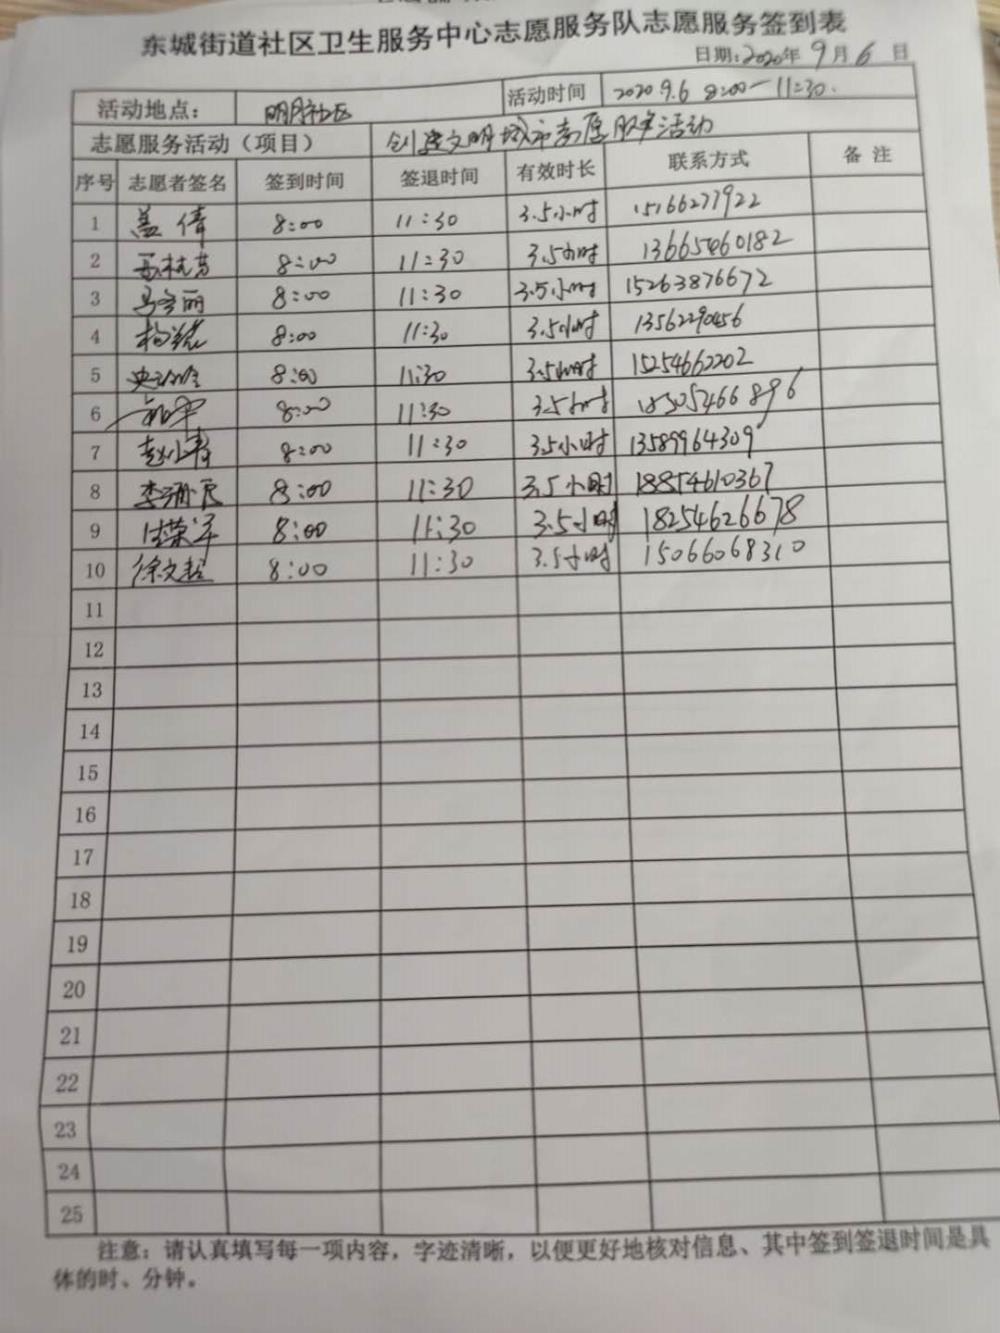 东城街道社区卫生服务中心志愿服务队志愿服务签到表
日期:2020年9月6日
活动地点: 明月社区 活动时间 2020 9.6 8:00—11:30.
志愿服务活动(项目) 创建文明城市志愿服务活动
序号 志愿者签名 签到时间 签退时间 有效时长 联系方式 备注
1 盖倩 8:00 11:30 3.5小时 15166277922
2 8:00 11:30 3.5小时 13665460182
3 马冬丽 8:00 11:30 3.5小时 15263876672
4 8:00 11:30 3.5小时 13562290456
5 8:00 11:30 3.5小时 15254662202
6 8:00 11:30 3.5小时 18505466896
7 8:00 11:30 3.5小时 13589964309
8 8:00 11:30 3.5小时 18854610367
9 8:00 11:30 3.5小时 18254626678
10 徐文超 8:00 11:30 3.5小时 15066068310
11
12
13
14
15
16
17
18
19
20
21
22
23
24
25
注意:请认真填写每一项内容,字迹清晰,以便更好地核对信息、其中签到签退时间是具
体的时、分钟。